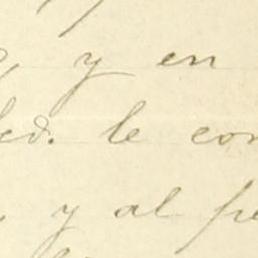 , y en
ed. le con
, y al pe